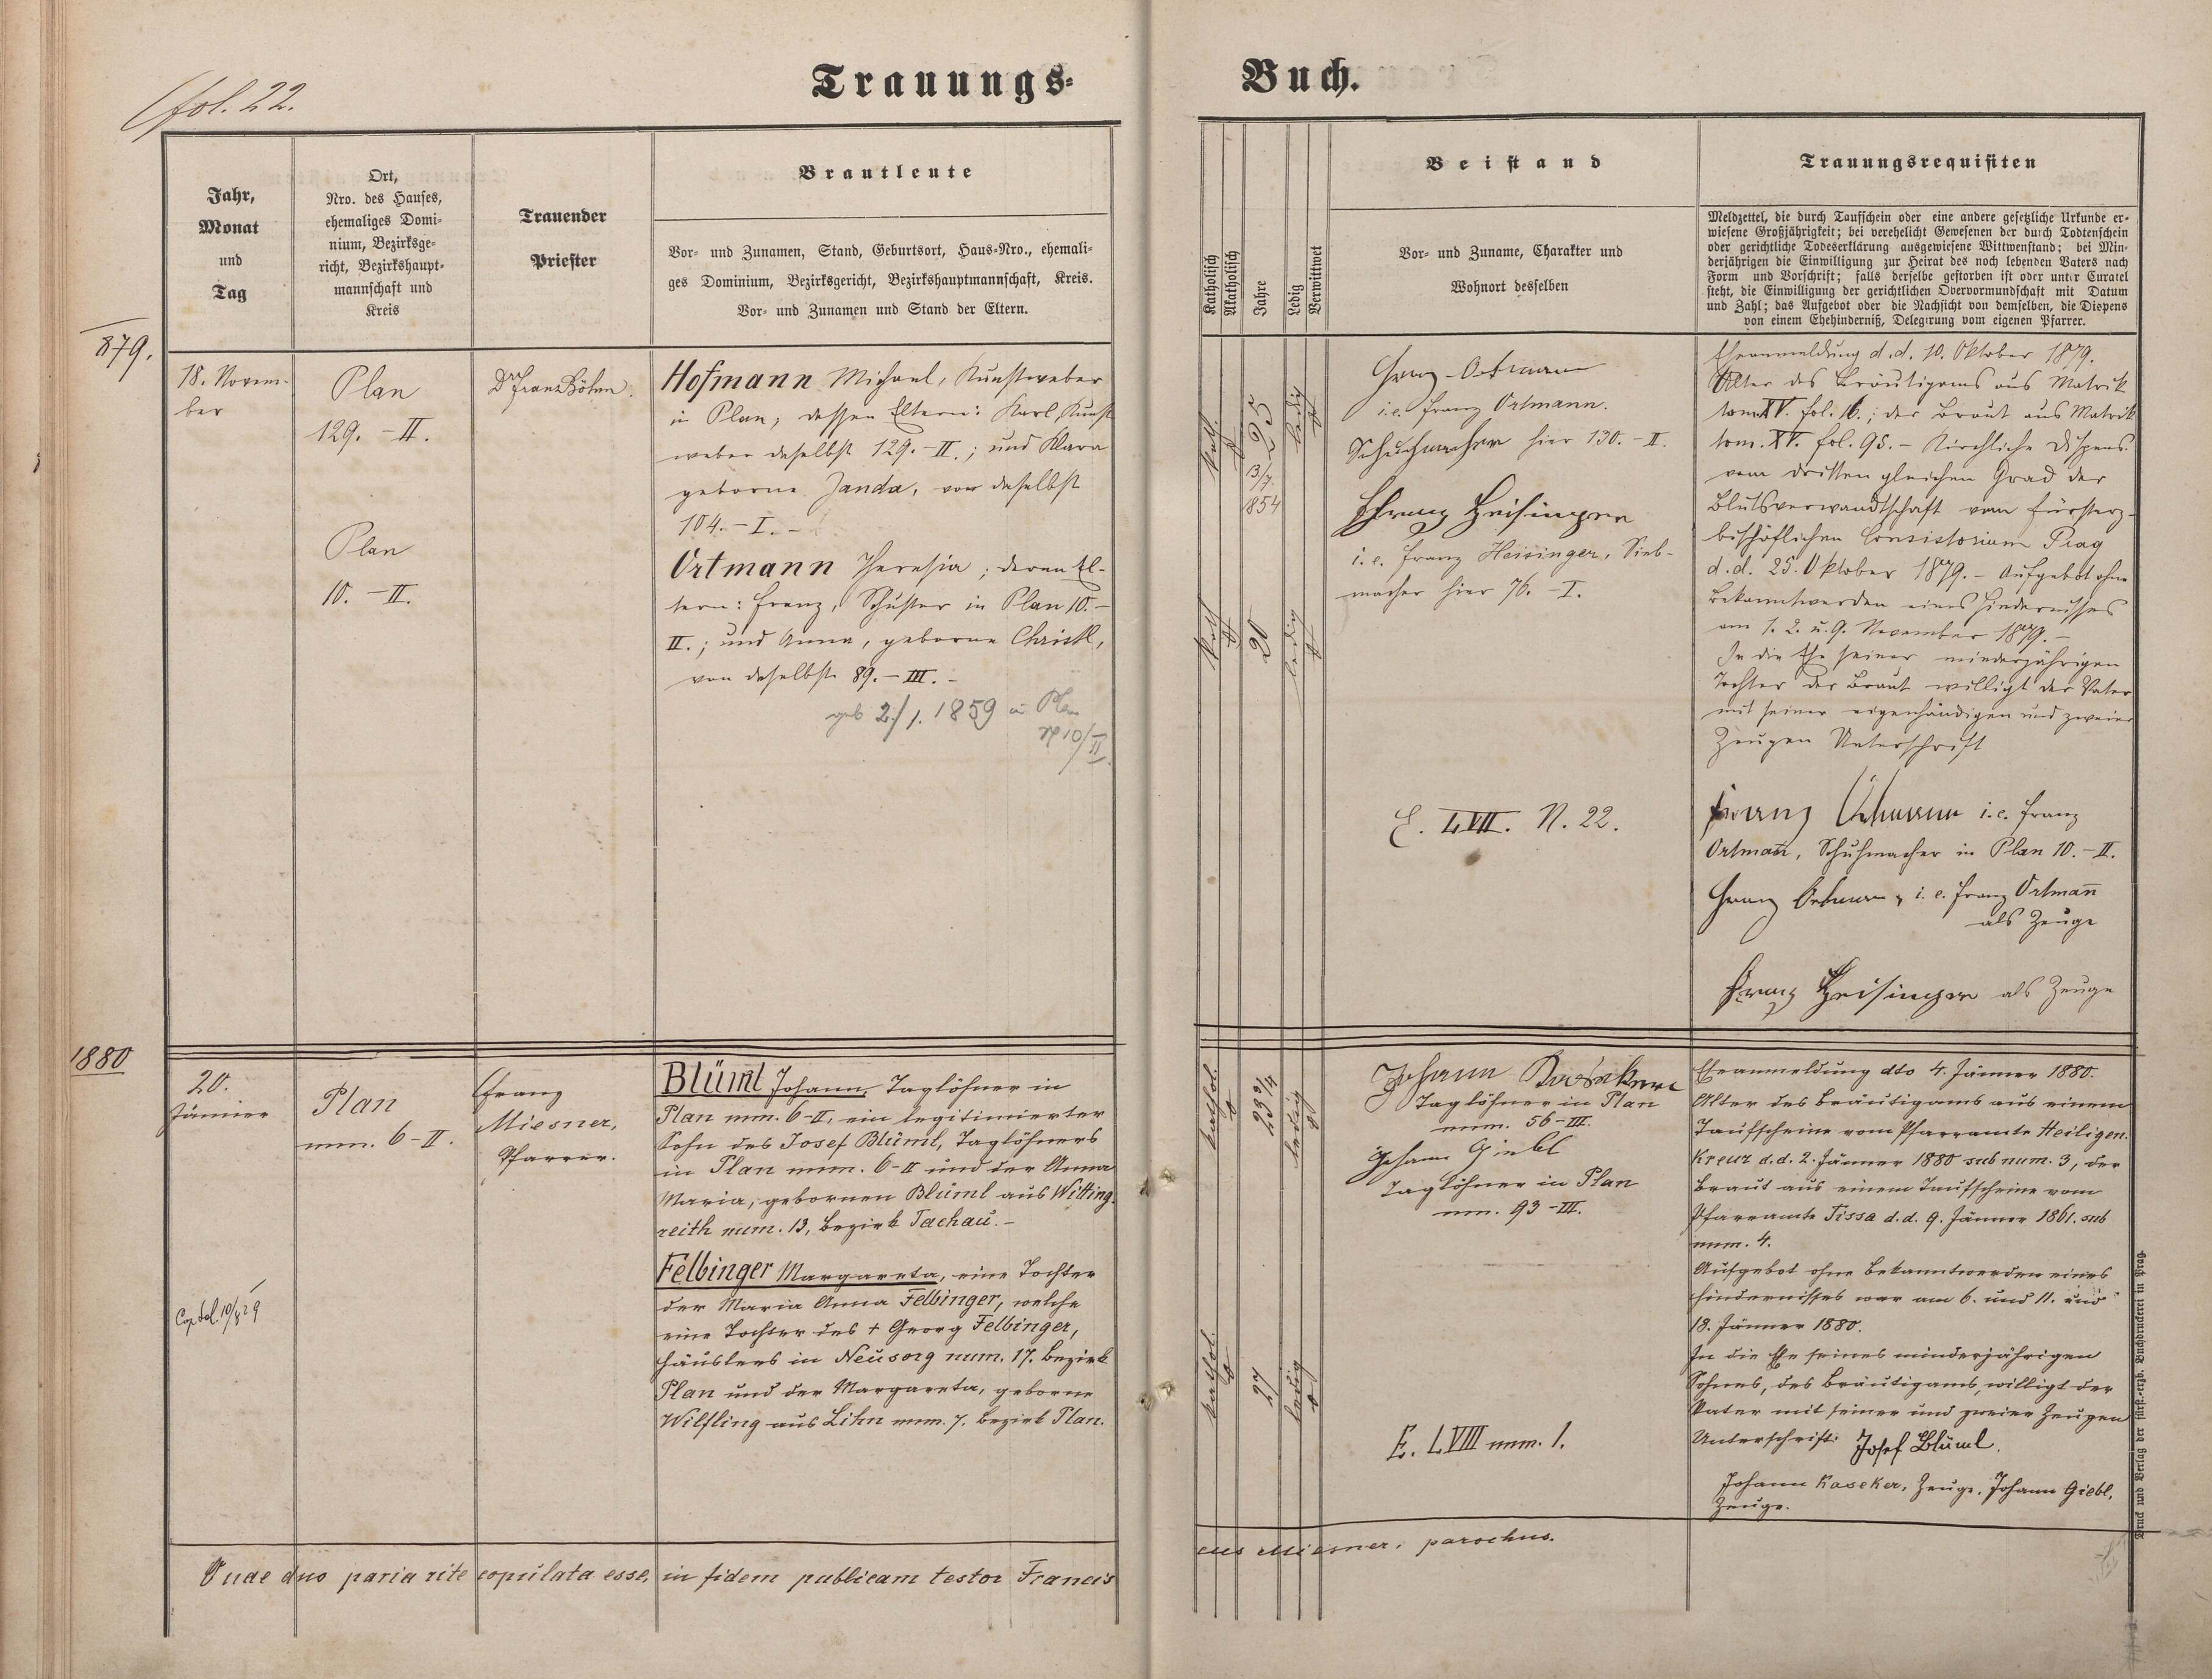 fol. 22.
Trauungs-
Buch.
Jahr,
Monat
und
Tag
Ort,
Nro. des Hauses,
ehemaliges Domi-
nium, Bezirksge-
richt, Bezirkshaupt-
mannschaft und
Kreis
Trauender
Priester
Brautleute
Vor- und Zunamen, Stand, Geburtsort, Haus-Nro., ehemali-
ges Dominium, Bezirksgericht, Bezirkshauptmannschaft, Kreis.
Vor- und Zunamen und Stand der Eltern.
Katholisch
Akatholisch
Jahre
Ledig
Verwittwet
Beistand
Vor- und Zuname, Charakter und
Wohnort desselben
Trauungsrequisiten
Meldzettel, die durch Taufschein oder eine andere gesetzliche Urkunde er-
wiesene Großjährigkeit; bei verehelicht Gewesenen der durch Todtenschein
oder gerichtliche Todeserklärung ausgewiesene Wittwenstand; bei Min-
derjährigen die Einwilligung zur Heirat des noch lebenden Vaters nach
Form und Vorschrift; falls derselbe gestorben ist oder unter Curatel
steht, die Einwilligung der gerichtlichen Obervormundschaft mit Datum
und Zahl; das Aufgebot oder die Nachsicht von demselben, die Dispens
von einem Ehehinderniß, Delegirung vom eigenen Pfarrer.
879.
18. Novem-
ber
Plan
129. - II.
Plan
10. - II.
Dr Franz Böhm.
Hofmann Michael, Kunstweber
in Plan, dessen Eltern: Karl, Kunst
weber daselbst 129. - II.; und Klara
geborne Janda, von daselbst
104. - I. -
Ortmann Theresia; deren El-
tern: Franz, Schuster in Plan 10. -
II.; und Anna, geborne Christl,
von daselbst 89. - III. -
geb 2./1. 1859 in Plan
No 10/II.
kath.
25
13/7.
1854
ledig
kath
20
ledig
Franz Ortmann
i.e. Franz Ortmann.
Schuhmacher hier 130. - II.
Franz Heisinger
i.e. Franz Heisinger, Sieb-
macher hier 76. - I.
E. LVII. N. 22.
Eheanmeldung d.d. 10. Oktober 1879.
Alter des Bräutigams aus Matrik
tom. XV. fol. 16.; der Braut aus Matrik
tom. XV. fol. 95. - Kirchliche Dispens
vom dritten gleichen Grad der
Blutsverwandtschaft vom fürsterz-
bischöflichen Consistorium Prag
d.d. 25. Oktober 1879. - Aufgebot ohne
Bekanntwerden eines Hindernisses
am 1. 2. u. 9. November 1879. -
In die Ehe seiner minderjährigen
Tochter der Braut willigt der Vater
mit seiner eigenhändigen und zweier
Zeugen Unterschrift
Franz Ortmann i.e. Franz
Ortmann, Schuhmacher in Plan 10. - II.
Franz Ortmann, i.e. Franz Ortmann
als Zeuge
Franz Heisinger als Zeuge
1880
20.
Jänner
Cop del. 10/8 29
Plan
num. 6-II.
Franz
Miesner,
Pfarrer.
Blüml Johann, Taglöhner in
Plan num. 6-II, ein legitimierter
Sohn des Josef Blüml, Taglöhners
in Plan num. 6-II und der Anna
Maria, gebornen Blüml aus Witting-
reith num. 13, Bezirk Tachau. -
Felbinger Margareta, eine Tochter
der Maria Anna Felbinger, welche
eine Tochter des † Georg Felbinger,
Häuslers in Neusorg num. 17. Bezirk
Plan und der Margareta, geborne
Wilfling aus Lihn num. 7. Bezirk Plan.
kathol.
23 3/4
ledig
kathol.
27
ledig
Johann
Taglöhner in Plan
num. 56-III.
Johann Giebl
Taglöhner in Plan
num. 93-III.
E. LVIII num. 1.
Eheanmeldung dto 4. Jänner 1880.
Alter des Bräutigams aus einem
Taufscheine vom Pfarramte Heiligen-
kreuz d.d. 2. Jänner 1880 sub num. 3, der
Braut aus einem Taufscheine vom
Pfarramte Tissa d.d. 9. Jänner 1861. sub
num. 4.
Aufgebot ohne Bekanntwerden eines
Hindernisses war am 6. und 11. und
18. Jänner 1880.
In die Ehe seines minderjährigen
Sohnes, des Bräutigams, willigt der
Vater mit seiner und zweier Zeugen
Unterschrift: Josef Blüml.
Johann Kaseker, Zeuge. Johann Giebl,
Zeuge.
Unde duo paria rite copulata esse, in fidem publicam testor Francis
cus Miesner, parochus.
Druck und Verlag der fürst.-erzb. Buchdruckerei in Prag.